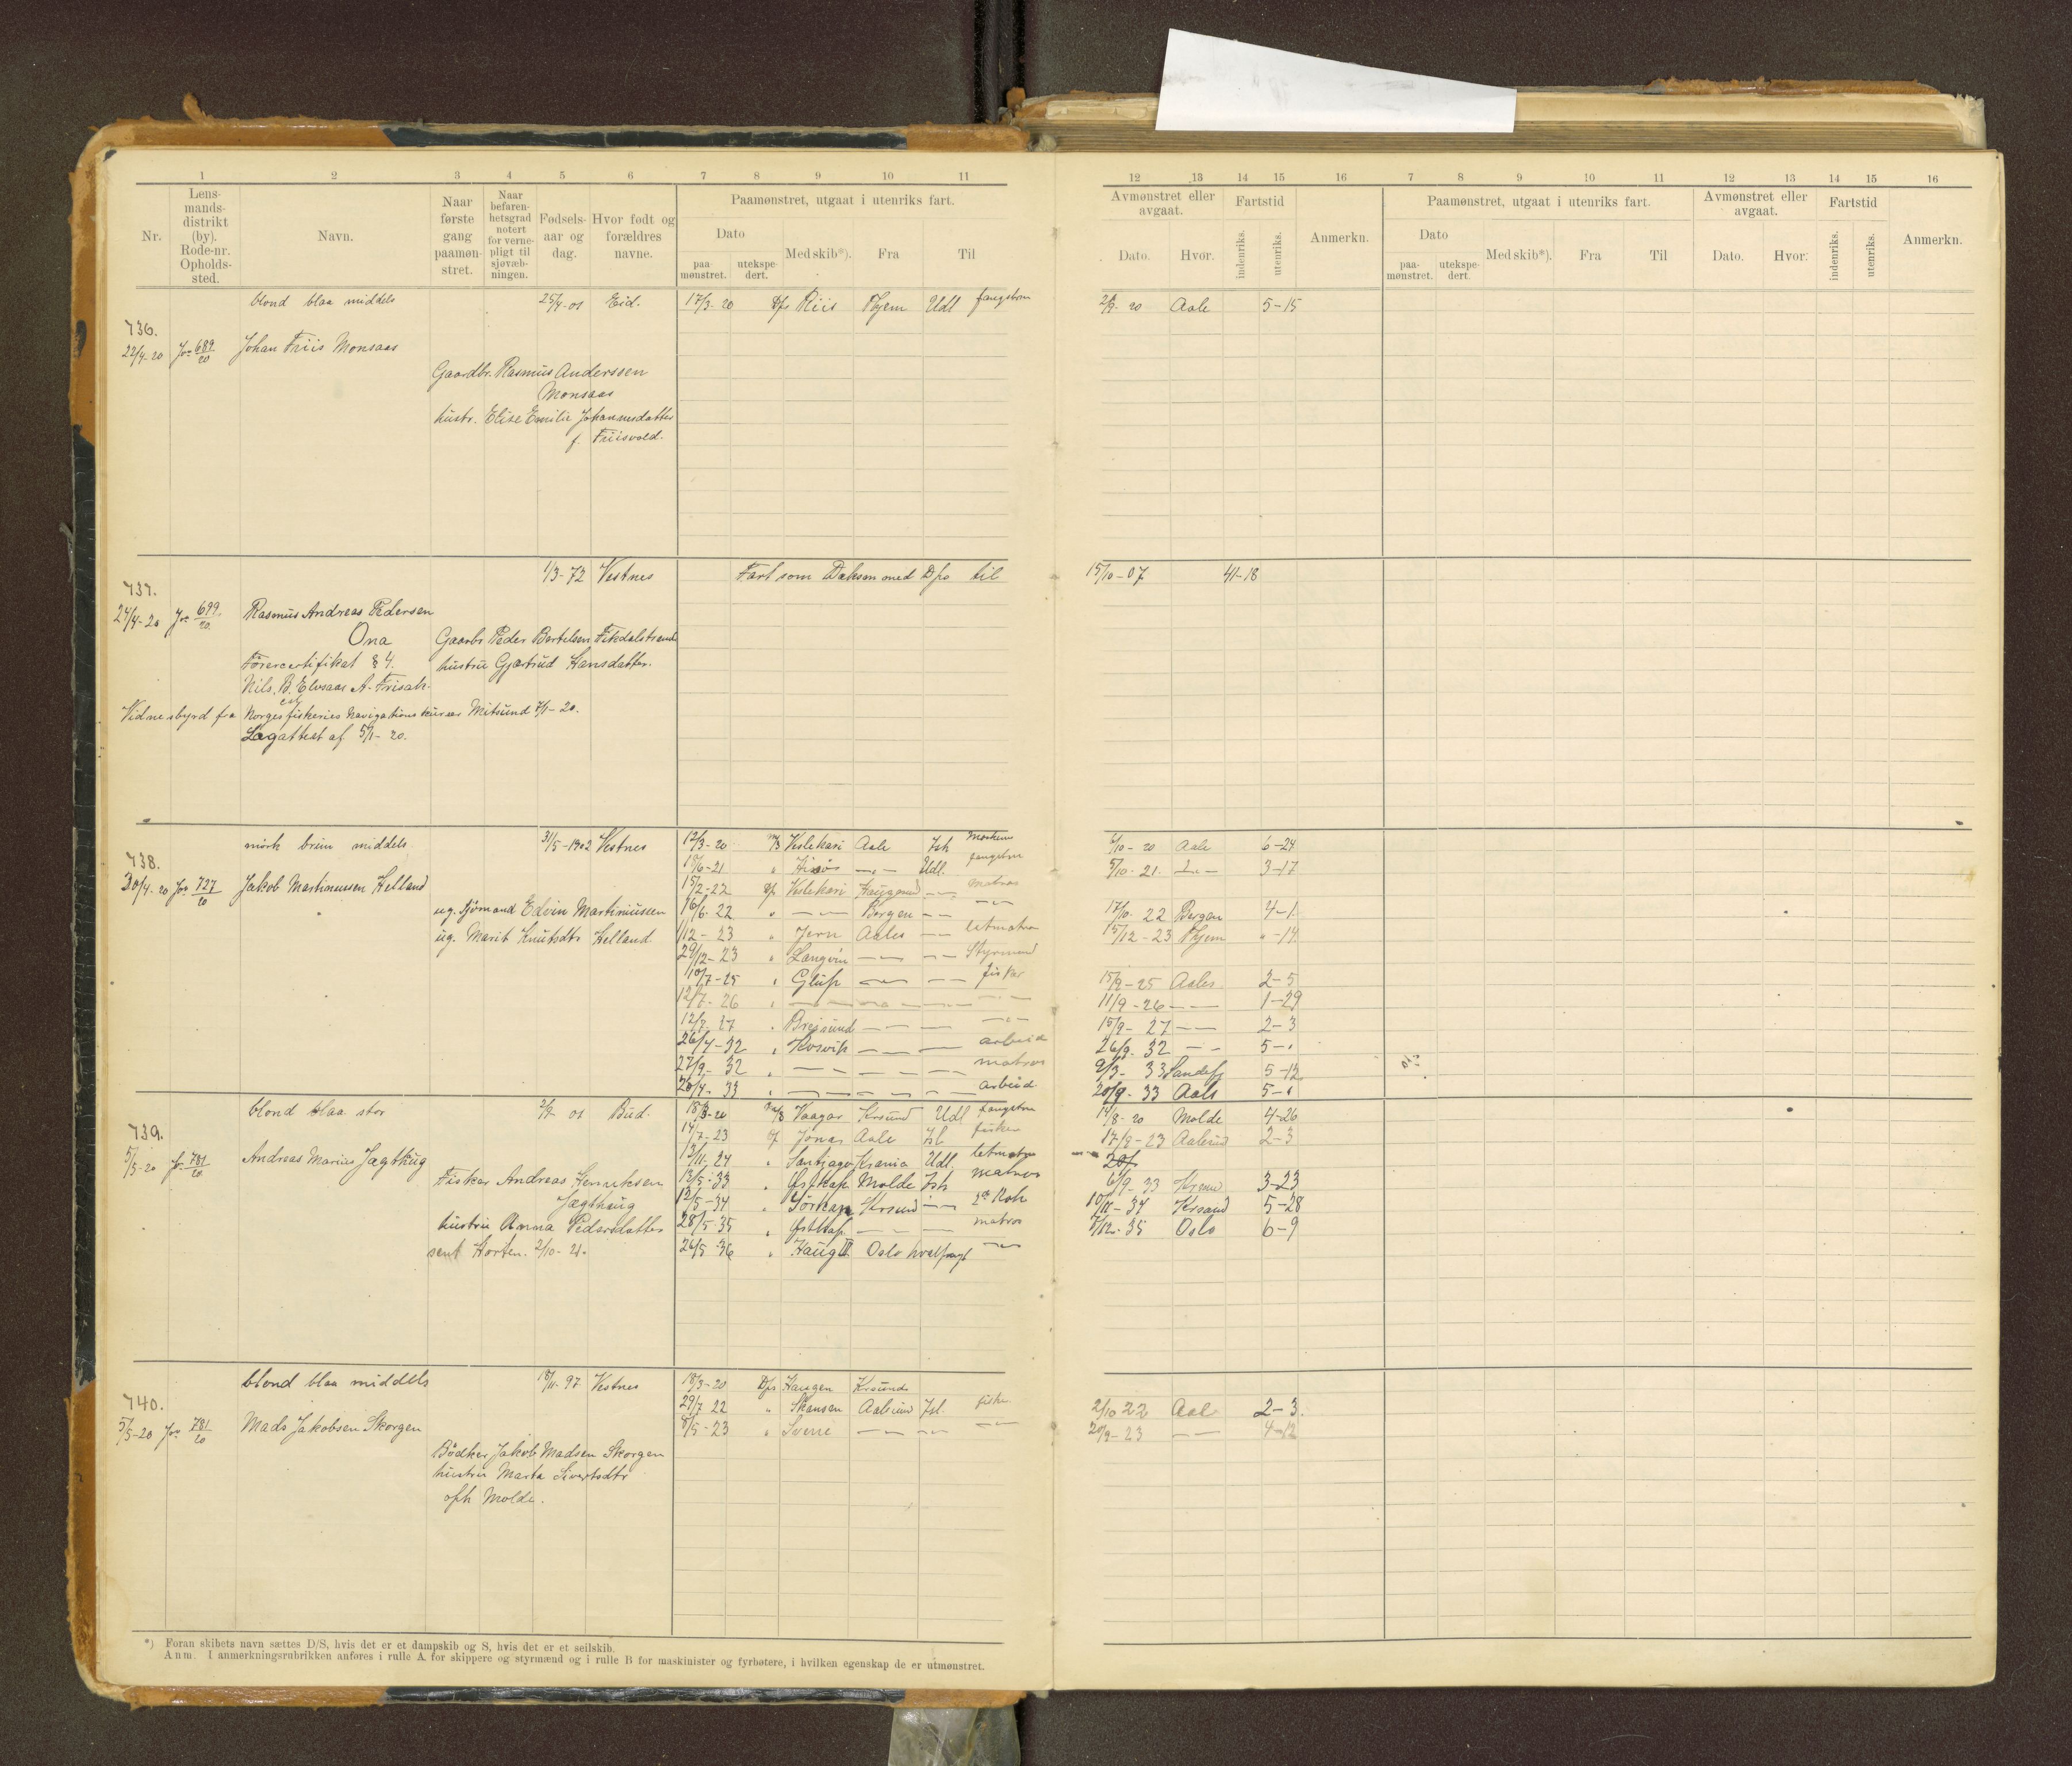 1 2 3 4 5 6 7 8 9 10 11
Nr. Lensmandsdistrikt (by). Rode-nr. Opholdssted. Navn. Naar første gang paamønstret. Naar befarenhetsgrad notert for vernepligt til sjøvæbningen. Fødselsaar og dag. Hvor født og forældres navne. Paamønstret, utgaat i utenriks fart.
Dato
paamønstret. utekspedert. Med skib*). Fra Til
12 13 14 15 16 7 8 9 10 11 12 13 14 15 16
Avmønstret eller avgaat. Fartstid Anmerkn. Paamønstret, utgaat i utenriks fart. Avmønstret eller avgaat. Fartstid Anmerkn.
Dato. Hvor. indenriks. utenriks. Dato paamønstret. utekspedert. Med skib*). Fra Til Dato. Hvor. indenriks. utenriks.
blond blaa middels 25/4-01 Eid. 17/3-20 D/s Riis Thjem Udl fangstm 20 Aale 5-15
736.
22/4-20 Jnr 689/20 Johan Friis Monsaas
Gaardbr. Rasmus Anderssen
Monsaas
hustr. Elise Emilie Johannesdatter
f. Friisvold.
1/3-72 Vestnes Fart som Dæksm med D/s til 15/10-07 41-18
737.
24/4-20 Jnr 699/20 Rasmus Andreas Pedersen
Ona Gaarbr Peder Bertelsen Fikdalstrand
Førercertifikat § 4. hustru Gjærtrud Hansdatter.
Nils. B. Elvsaas A. Frisak.
Vidnesbyrd fra Norges fiskeries Navigationskurser Mitsund 7/1-20.
Lægattest af 5/1-20.
mörk brun middels 31/5-1902 Vestnes 12/3-20 M/S Veslekari Aale Ish 6/10-20 Aale 6-24
738.
18/6-21 " Aale Udl. fangstm 5/10-21 3-17
30/4-20 Jnr 727/20 Jakob Martinussen Helland 15/2-22 D/s Veslekari Haugesund matros
ug. Sjömand Edvin Martinussen 16/6-22 " — Bergen — 17/10-22 Bergen 4-1
ug. Marit Knutsdtr Helland. 1/12-23 " Jern Aales letmatros 15/12-23 Thjem "-14
29/12-23 " Langvin — Styrmand
10/7-25 " Glup — fisker 15/9-25 Aales 2-5
12/7-26 " — 11/9-26 — 1-29
12/7-27 " Breisund — 15/9-27 — 2-3
26/4-32 " Kosvik — arbeid 26/9-32 — 5-"
27/9-32 " — matros 9/3-33 Sandefj 5-12
20/4-33 " — arbeid 20/9-33 Aals 5-"
blond blaa stor 2/9-01 Bud. 18/3-20 M/S Vaagar Krsund Udl fangstm 14/8-20 Molde 4-26
739.
14/7-23 Jonas Aale Isl fisker 17/9-23 Aalesund 2-3
5/5-20 Jnr 781/20 Andreas Marius Jægthaug 13/11-24 " Santiago Krania Udl. letmatros
Fisker Andreas Henriksen 13/5-33 " Østkap Molde Ish matros 6/9-33 Krsund 3-23
Jægthaug 12/5-34 " Sörkap Krsund — Kok 10/11-34 Krsund 5-28
hustru Anna Pedersdatter 28/5-35 " Østkap — matros 7/12-35 Oslo 6-9
sent Horten. 2/10-21. 26/5-36 " Haug III Oslo hvalfangst —
blond blaa middels 18/11-97 Vestnes 18/3-20 D/s Haugen Krsund
740.
29/7-22 " Skansen Aalesund Isl. fisker 2/10 22 Aal 2-3.
5/5-20 Jnr 781/20 Mads Jakobsen Skorgen 8/5-23 " Sverre — 20/9-23 —
Bödker Jakob Madsen Skorgen
hustru Marta Sivertsdtr
oph Molde.
*) Foran skibets navn sættes D/S, hvis det er et dampskib og S, hvis det er et seilskib.
Anm. I anmerkningsrubrikken anføres i rulle A for skippere og styrmænd og i rulle B for maskinister og fyrbøtere, i hvilken egenskap de er utmønstret.